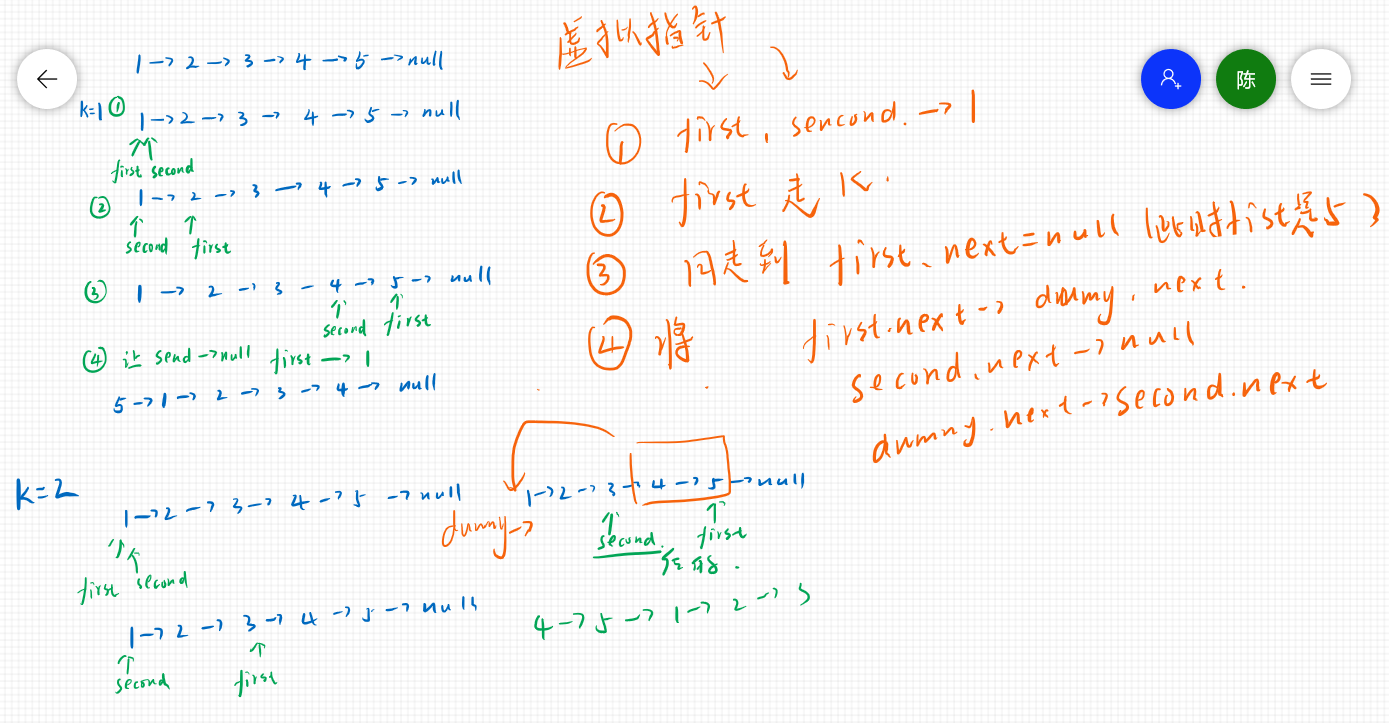 1→2→3→4→5→null
k=1 ① 1→2→3→4→5→null
first second
② 1→2→3→4→5→null
second first
③ 1→2→3-4→5→null
second first
④ 让 send→null first→1
5→1→2→3→4→null
虚拟指针
① first, sencond.→1
② first 走 K.
③ 同走到 first、next=null (此时fist是5)
④ 将 first.next→dummy.next.
second、next→null
dummy.next→second.next
陈
k=2
1→2→3→4→5→null
first second
1→2→3→4→5→null
second first
1→2→3→4→5→null
dummy→
second. first
4→5→1→2→3